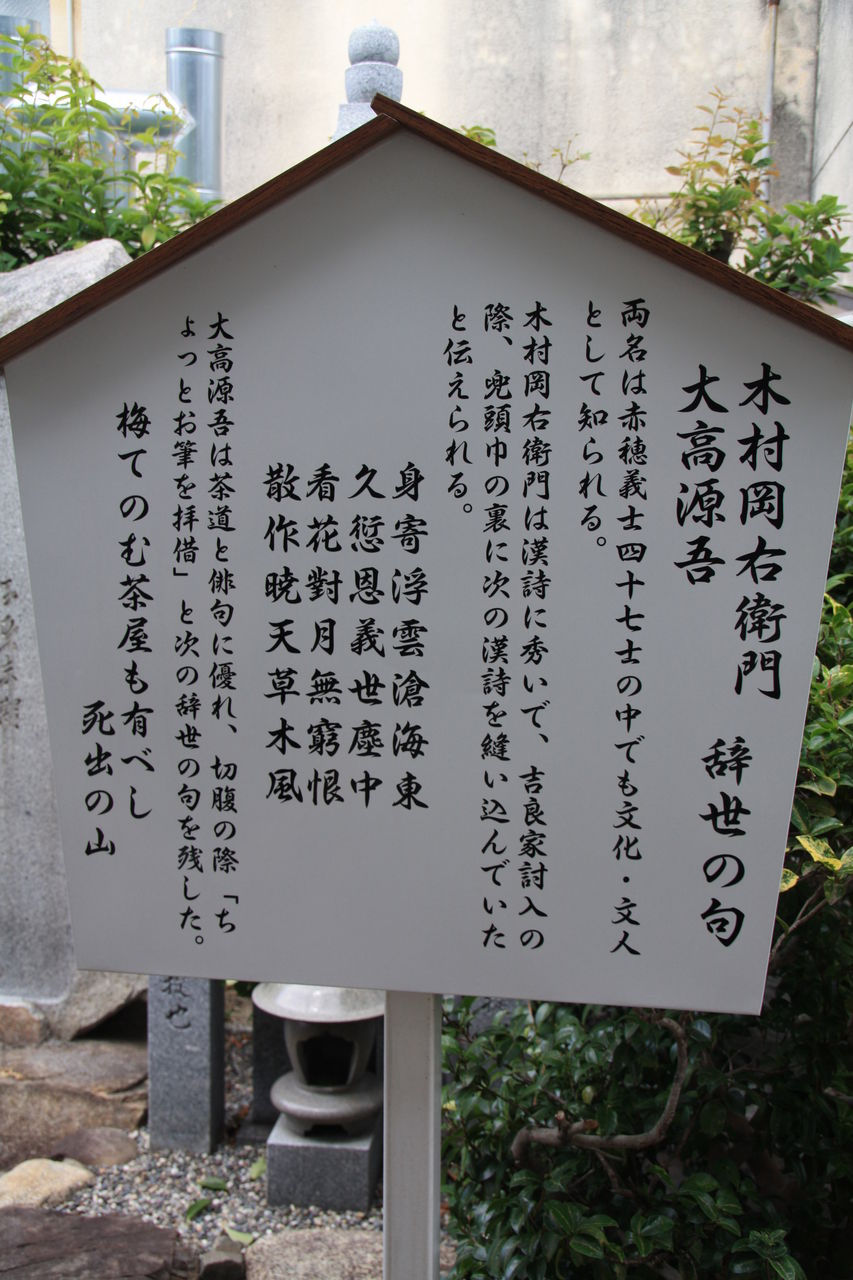 木村岡右衛門
大高源吾
辞世の句
両名は赤穂義士四十七士の中でも文化・文人
として知られる。
木村岡右衛門は漢詩に秀いで、吉良家討入の
際、兜頭巾の裏に次の漢詩を縫い込んでいた
と伝えられる。
身寄浮雲滄海東
久愆恩義世塵中
看花對月無窮恨
散作暁天草木風
大高源吾は茶道と俳句に優れ、切腹の際「ち
ょっとお筆を拝借」と次の辞世の句を残した。
梅てのむ茶屋も有べし
死出の山